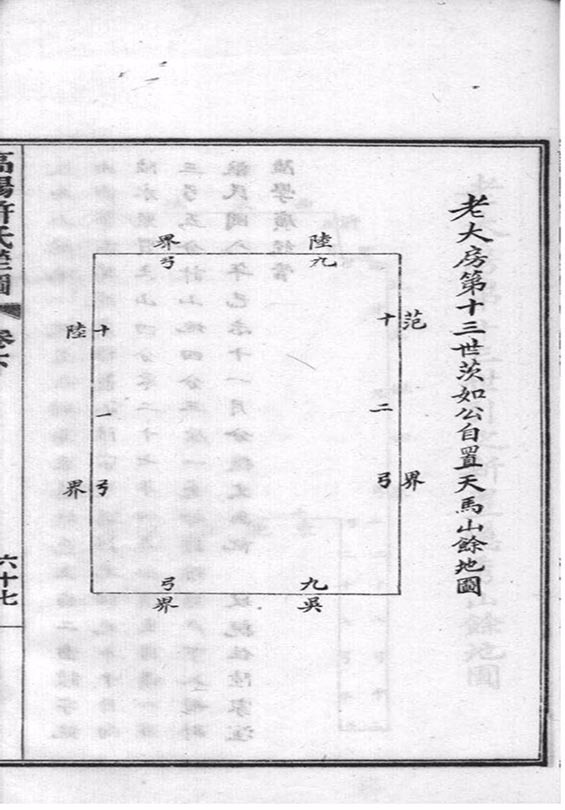 老大房第十三世茨如公自置天馬山餘地圖
范界
十二弓
陸界
九弓
十一弓
陸界
九弓
吳界
高陽許氏塋圖
卷下
六十七